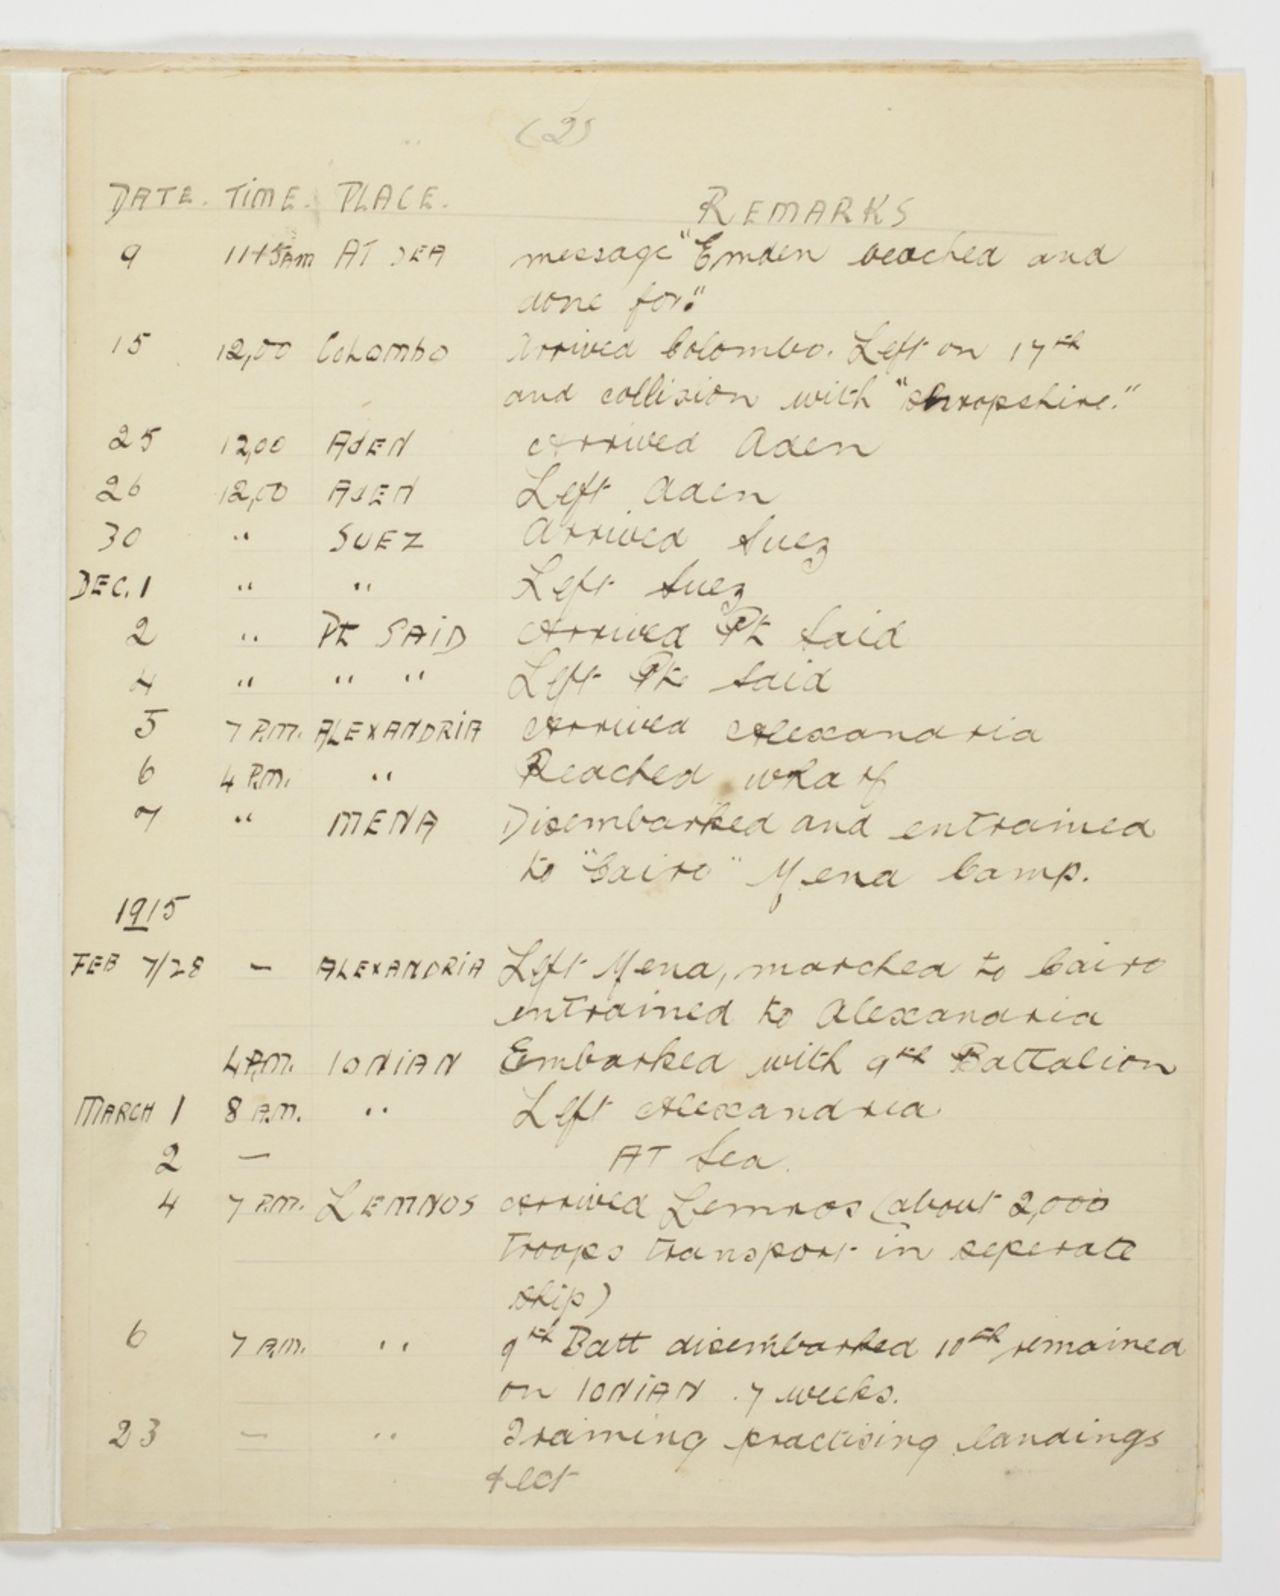 (2)
DATE. TIME. PLACE. REMARKS
9 1145AM AT SEA message "Emden beached and
done for."
15 12,00 Colombo Arrived Colombo. Left on 17th
and collision with "Shropshire."
25 12,00 ADEN Arrived Aden
26 12,00 ADEN Left Aden
30 " SUEZ Arrived Suez
DEC. 1 " " Left Suez
2 " Pt SAID Arrived Pt Said
4 " " " Left Pt. Said
5 7 P.M. ALEXANDRIA Arrived Alexandria
6 4 P.M. " Reached wharf
7 " MENA Disembarked and entrained
to "Cairo" Mena Camp.
1915
FEB 7/28 – ALEXANDRIA Left Mena, marched to Cairo
entrained to Alexandria
4 P.M. IONIAN Embarked with 9th Battalion
MARCH 1 8 A.M. " Left Alexandria
2 — AT Sea.
4 7 P.M. LEMNOS Arrived Lemnos (about 2,000
troops transport in seperate
ship)
6 7 A.M. " 9th Batt disembarked 10th remained
on IONIAN. 7 weeks.
23 – " Training practising landings
& ect